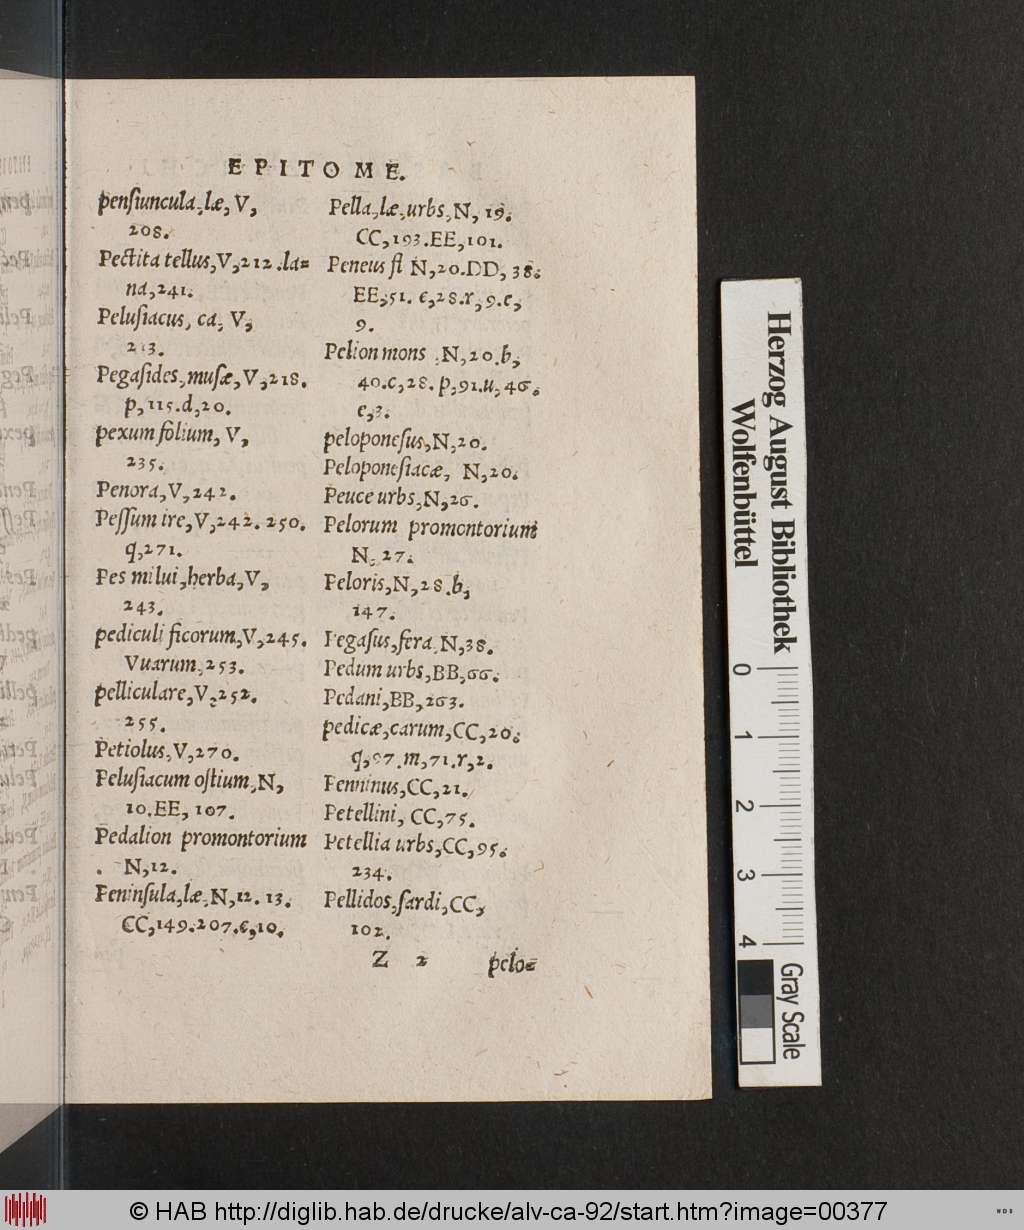 EPITOME.
pensiuncula,læ, V,
208.
Pectita tellus,V,212.la=
na,241.
Pelusiacus, ca, V,
213.
Pegasides,musæ,V,218.
p,115.d,20.
pexum folium, V,
235.
Penora,V,242.
Pessum ire,V,242.250.
q,271.
Pes milui,herba,V,
243.
pediculi ficorum,V,245.
Vuarum,253.
pelliculare,V,252.
255.
Petiolus,V,270.
Pelusiacum ostium,N,
10.EE, 107.
Pedalion promontorium
N,12.
Peninsula,læ,N,12.13.
CC,149.207.e,10.
Pella,læ,urbs,N, 19.
CC,193.EE,101.
Peneus fl N,20.DD, 38.
EE,51. e,28.r,9.e,
9.
Pelion mons ,N,20.b,
40.c,28.p,91.u,46.
e,3.
peloponesus,N,20.
Peloponesiacæ, N,20.
Peuce urbs,N,26.
Pelorum promontorium
N,27.
Peloris,N,28.b,
147.
Pegasus,fera,N,38.
Pedum urbs,BB,66.
Pedani,BB,263.
pedicæ,carum,CC,20.
q,97.m,71.r,2.
Penninus,CC,21.
Petellini, CC,75.
Petellia urbs,CC,95.
234.
Pellidos,sardi,CC,
102.
Z 2 pelo=
Herzog August Bibliothek
Wolfenbüttel
0 1 2 3 4
Gray Scale
© HAB http://diglib.hab.de/drucke/alv-ca-92/start.htm?image=00377